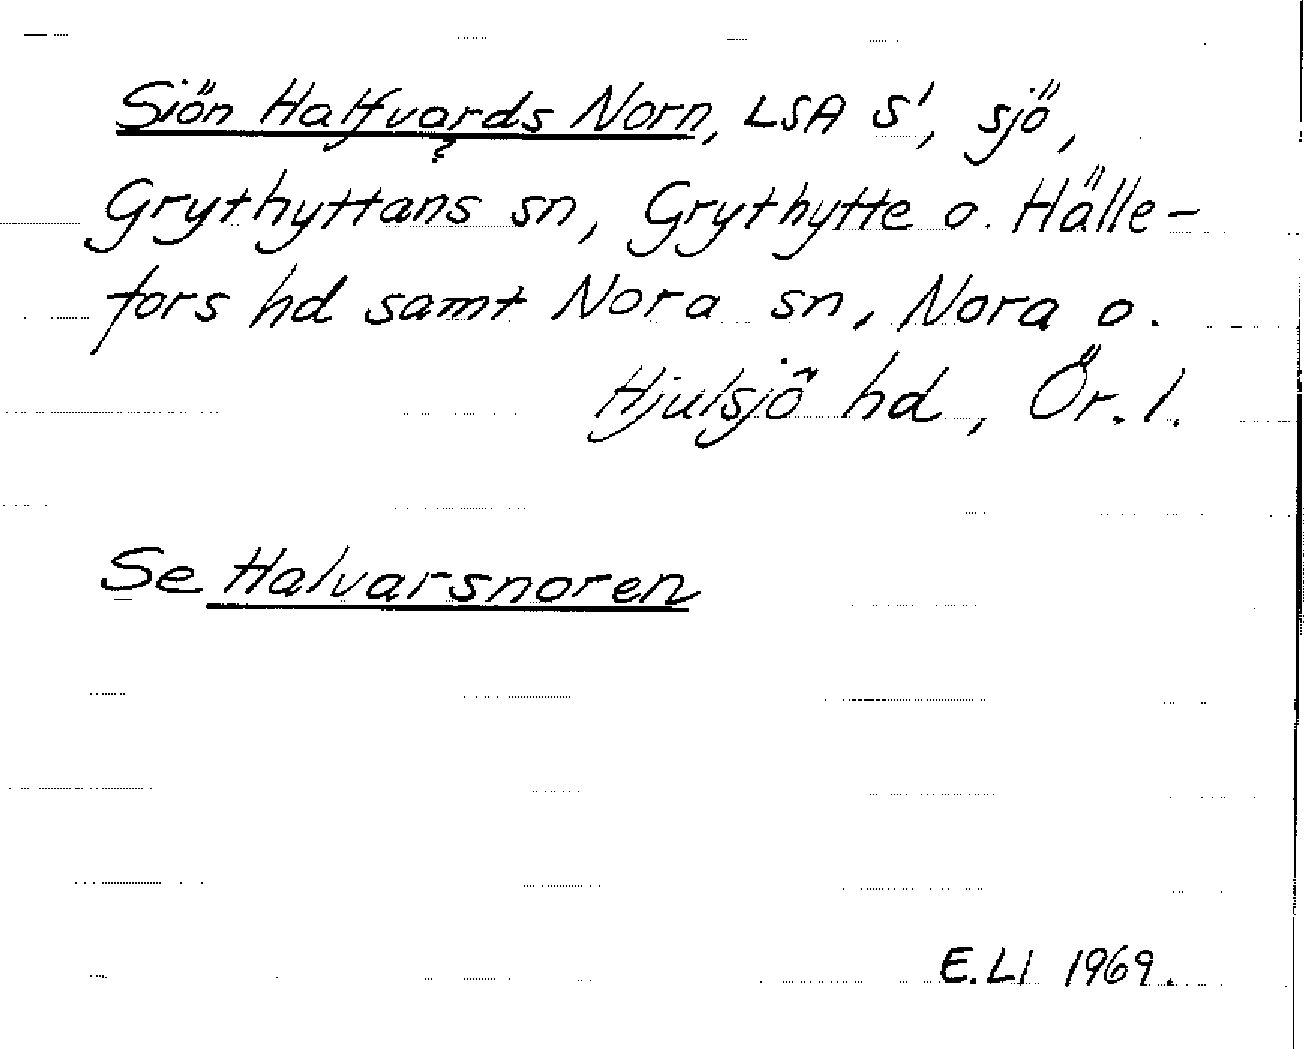 Siön Halfvards Norn, LSA S¹, sjö,
?
Grythyttans sn, Grythytte o. Hälle-
fors hd samt Nora sn, Nora o.
Hjulsjö hd, Ör. l.
Se Halvarsnoren
E.LI 1969.